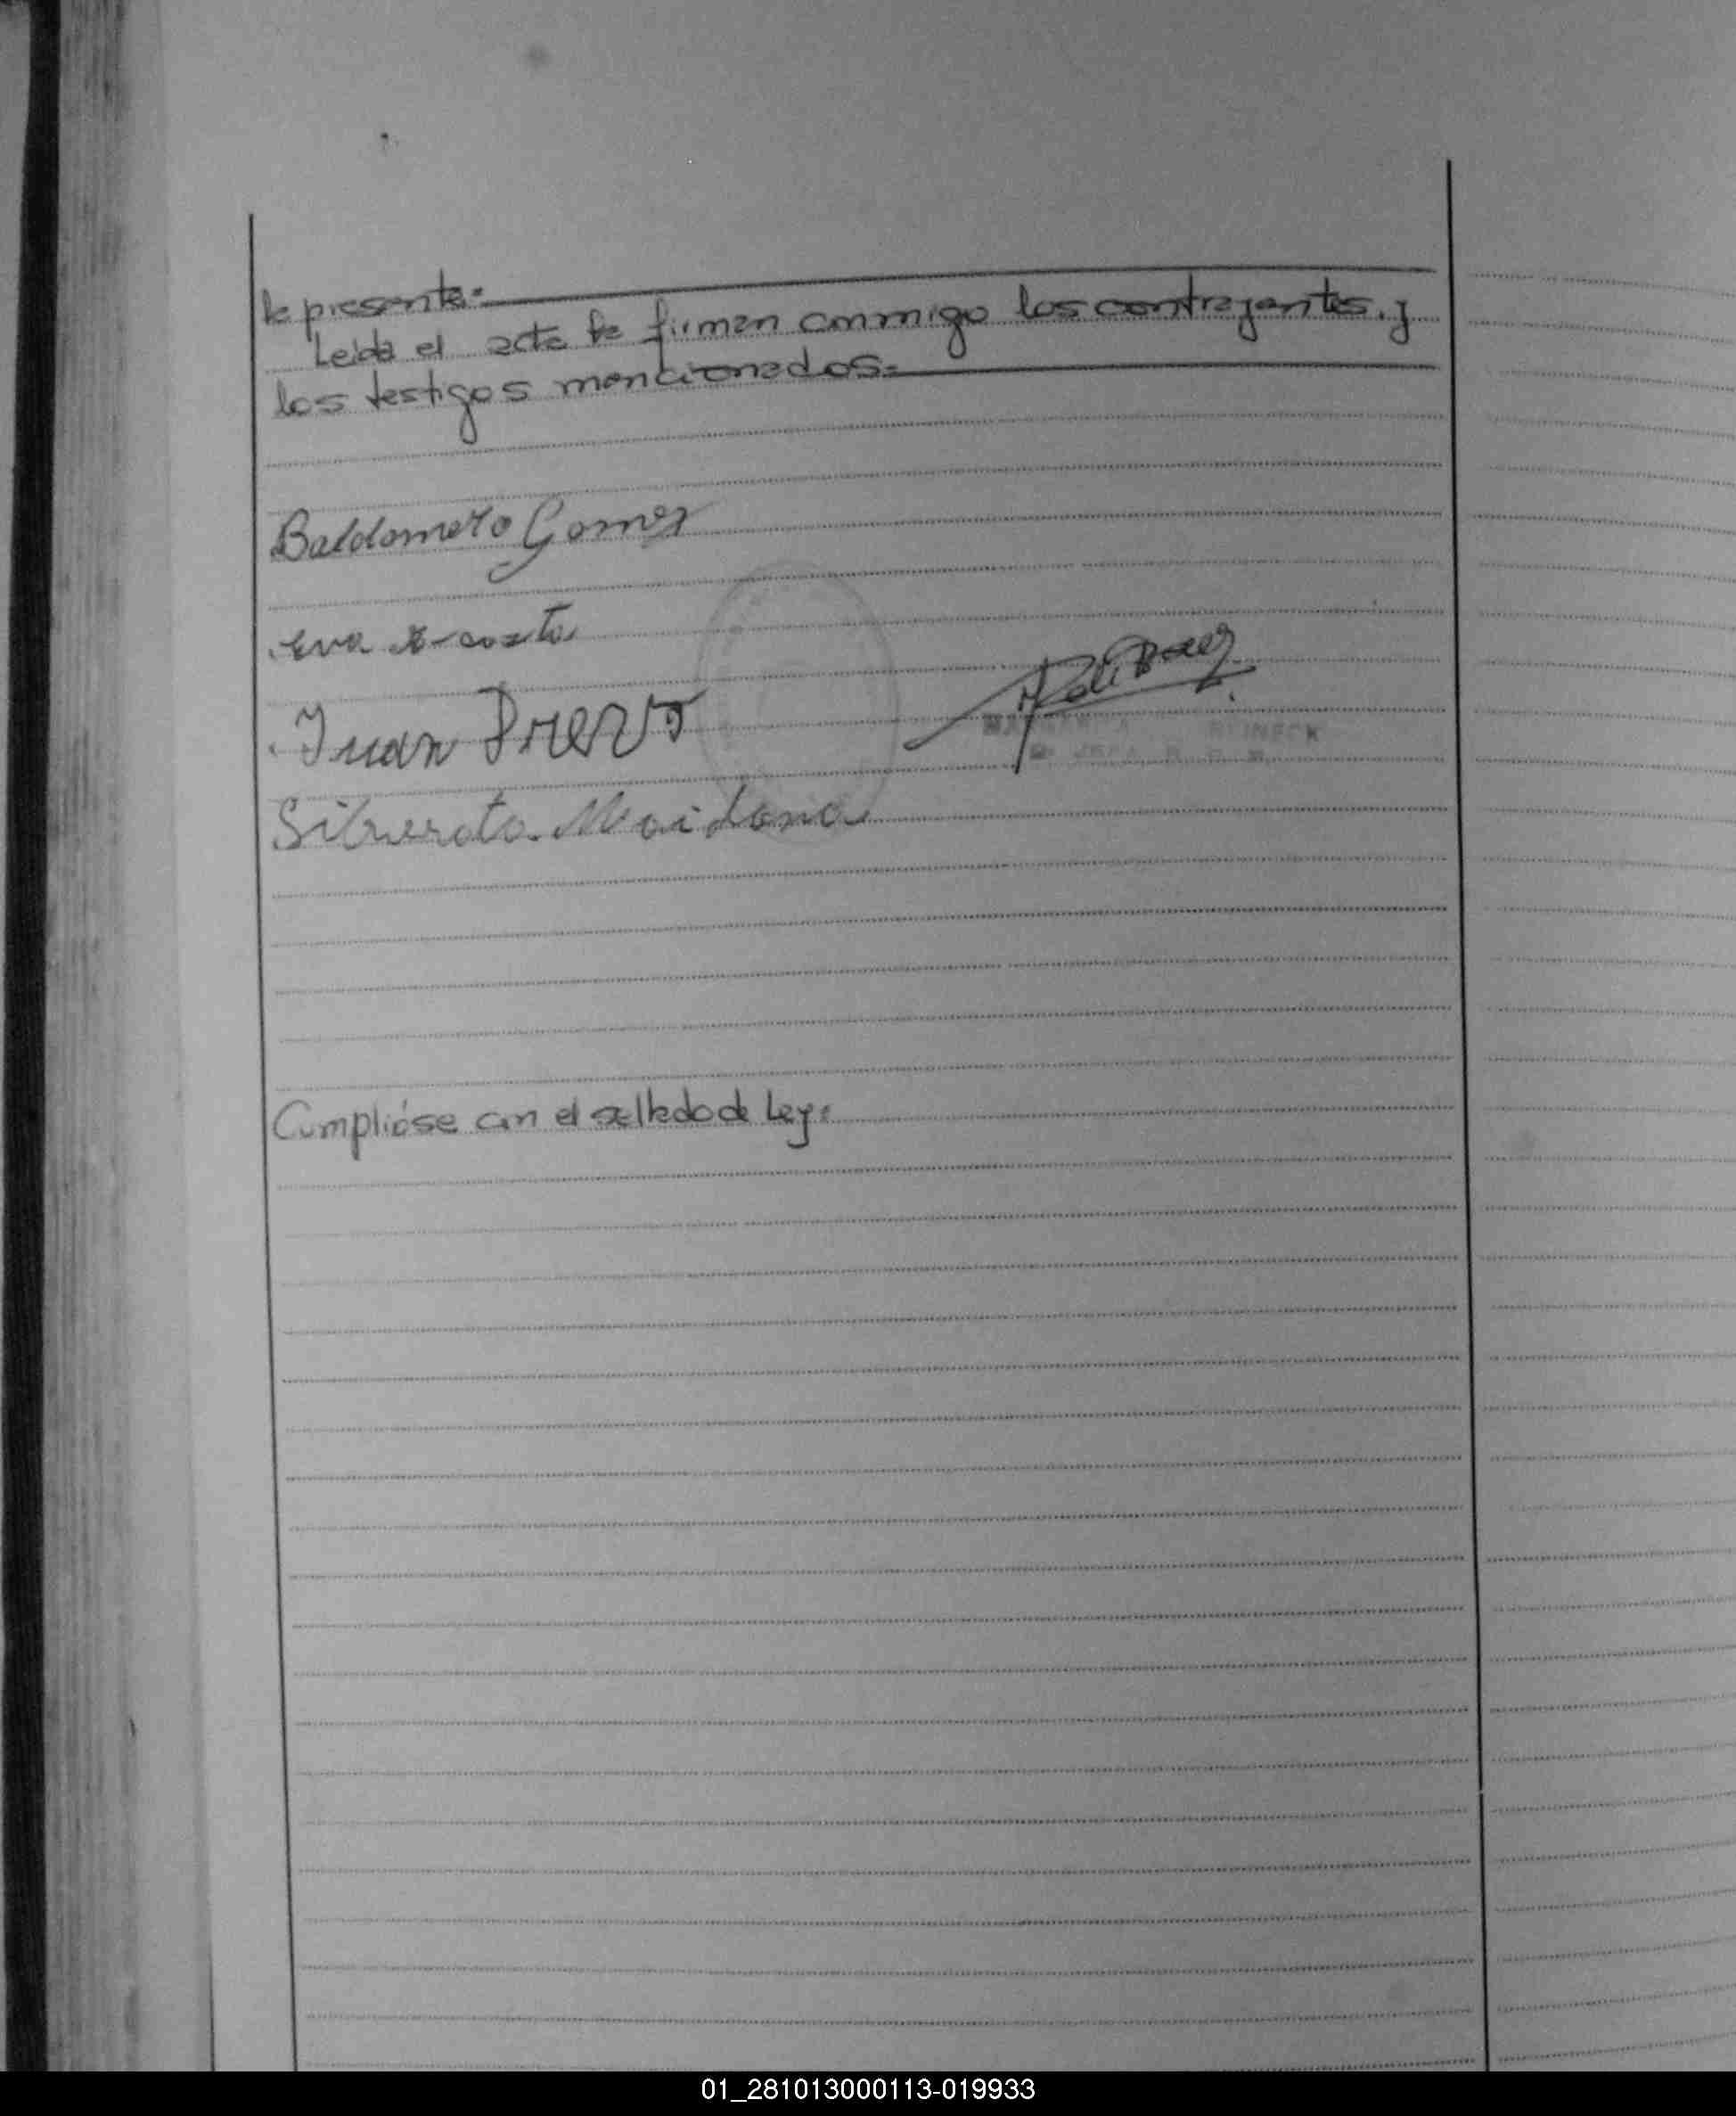 la presente.-
Leída el acta la firman conmigo los contrayentes, y
los testigos mencionados.-
Baldomero Gomez
Eva Acosta
Juan
Silverita Maidana
JEFA R.
Cumplióse con el sellado de Ley.-
01_281013000113-019933